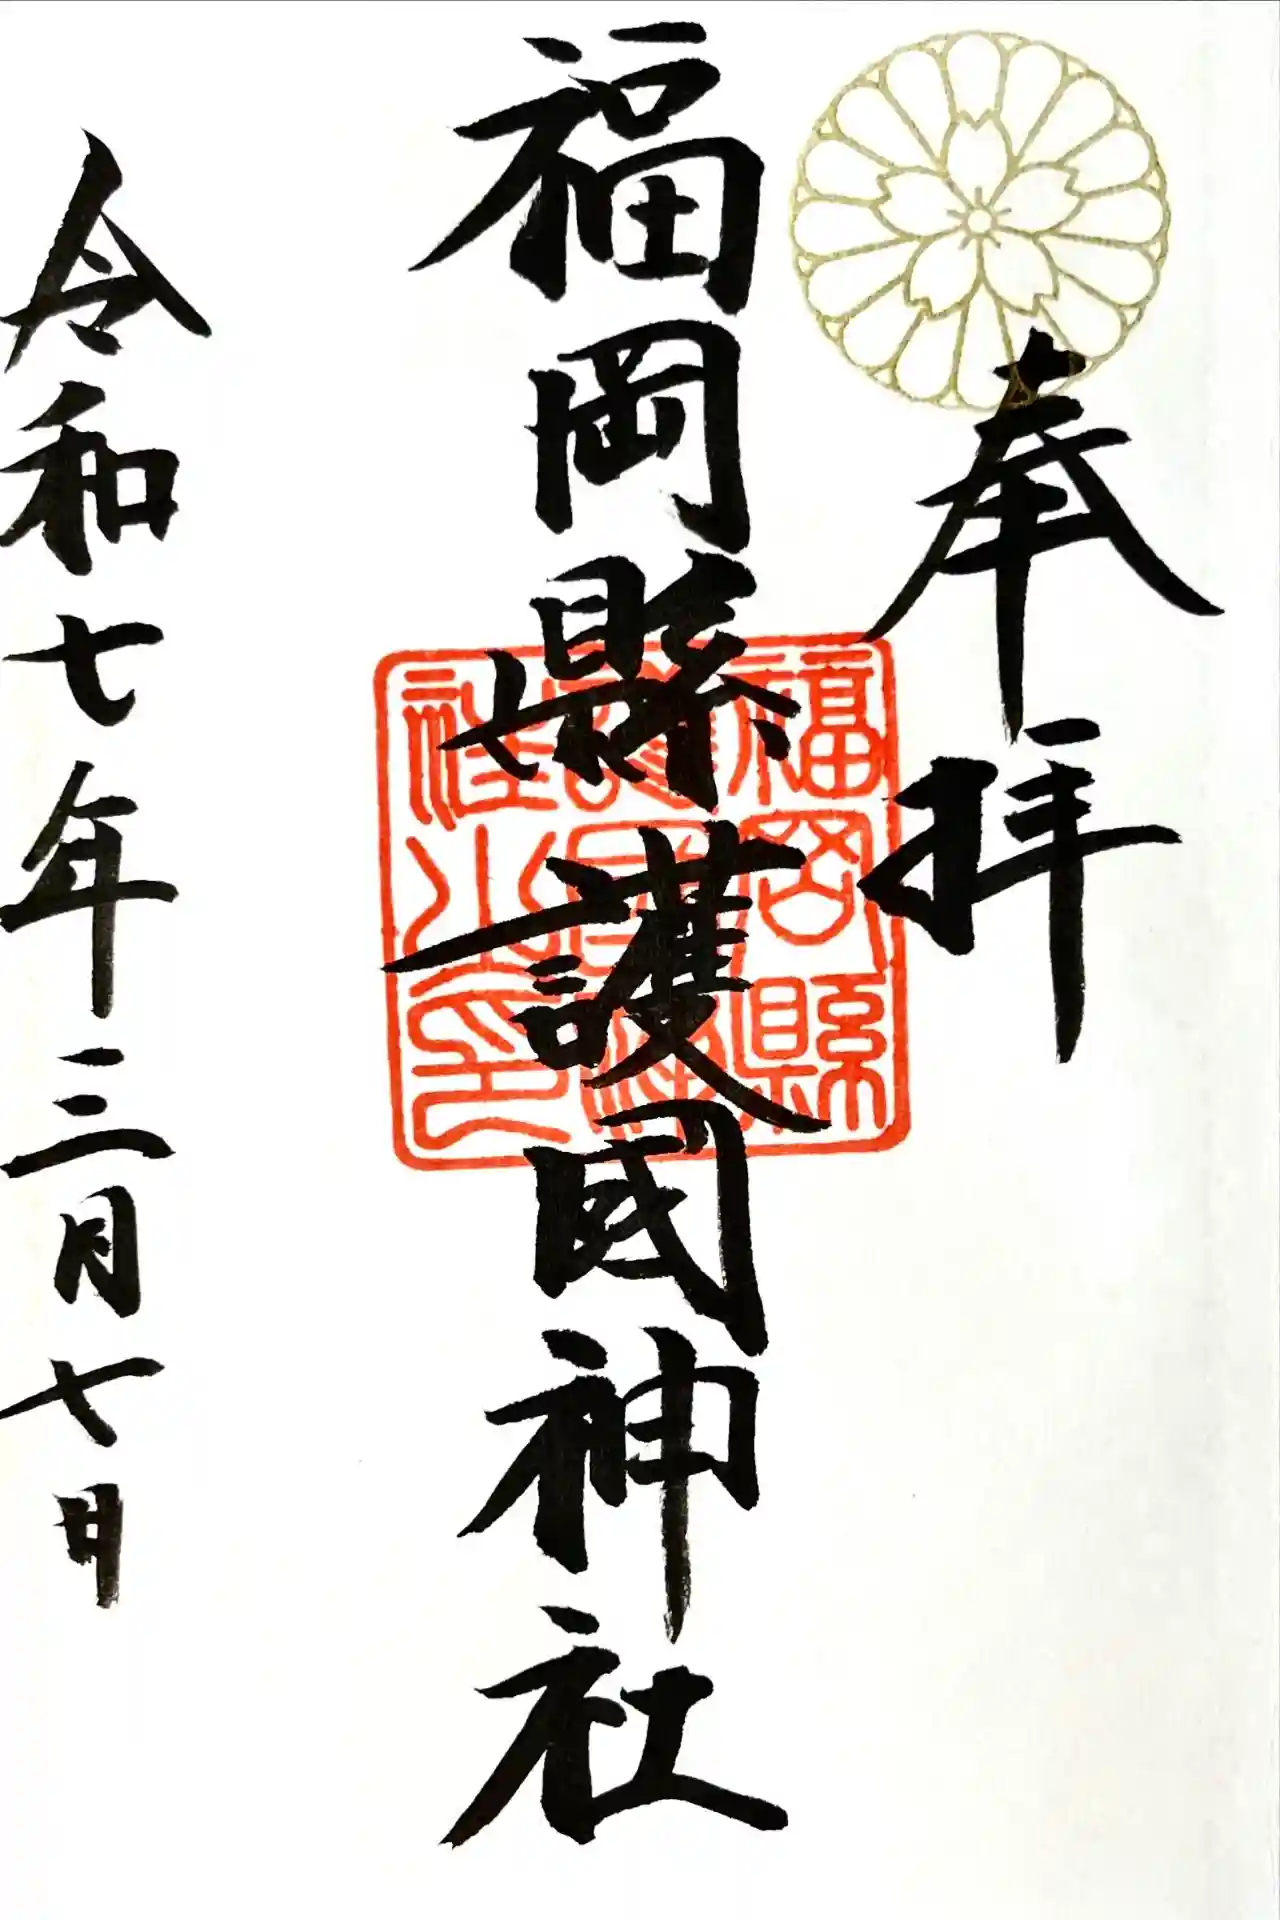 奉拝
福岡縣護國神社
福岡縣
護國神
社之印
令和七年三月七日